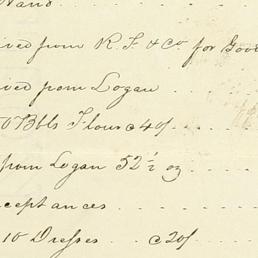 Hand
ived from R. F. & Co. for Good
ived from Logan
0 Bbls Flour c 40/
from Logan 52 1/2 oz
cceptances
10 Dresses c 20/